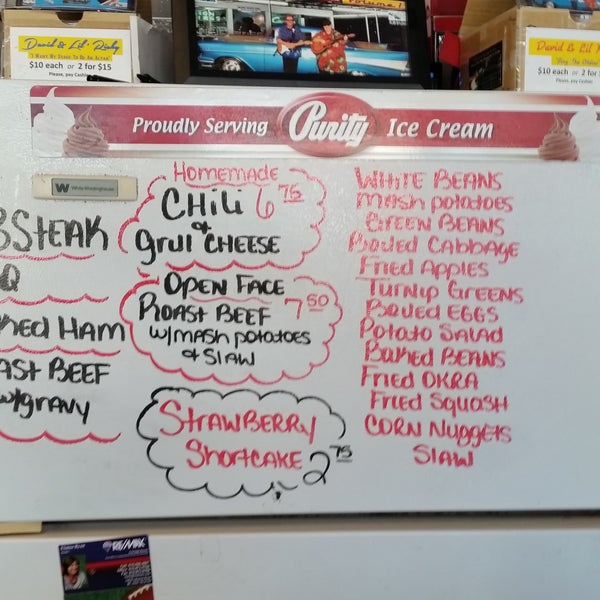 David & Lil' Ricky
$10 each or 2 for $15
Please, pay Cashier
David & Lil' R
$10 each or 2 for $15
Please, pay Cashier
Proudly Serving Purity Ice Cream
W White-Westinghouse
STEAK
Q
KED HAM
AST BEEF
w/gravy
HOMEMADE
CHili 6 75
&
gril CHEESE
OPEN FACE
ROAST BEEF 7 50
w/mash potatoes
& Slaw
Strawberry
Shortcake 2 75
White Beans
mash potatoes
Green Beans
Boiled Cabbage
Fried Apples
Turnip Greens
Boiled EGGS
Potato Salad
Baked Beans
Fried OKRA
Fried Squash
CORN Nuggets
Slaw
RE/MAX